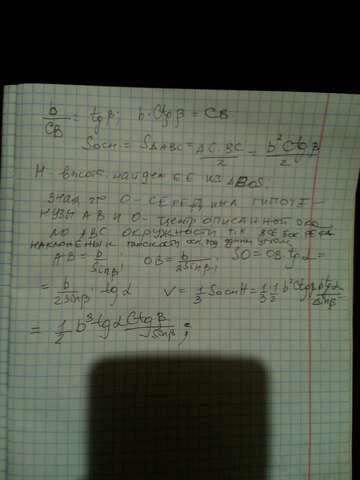 b/CB = tgβ; b·Ctgβ = CB
Sосн = SΔABC = AC·BC/2 = b²Ctgβ/2
H - высота. найдем её из ΔBOS:
O - середина гипоте-
нузы AB и O - центр описанной око
ло ABC окружности т.к все бок. рёбра
наклонены к плоскости осн. под одним углом
AB = b/sinβ; OB = b/2sinβ; SO = OB·tgα =
= b/2sinβ · tgα V = 1/3 Sосн H = 1/3 · 1/2 b²Ctgβ
= 1/2 b³tgα Ctgβ/sinβ;